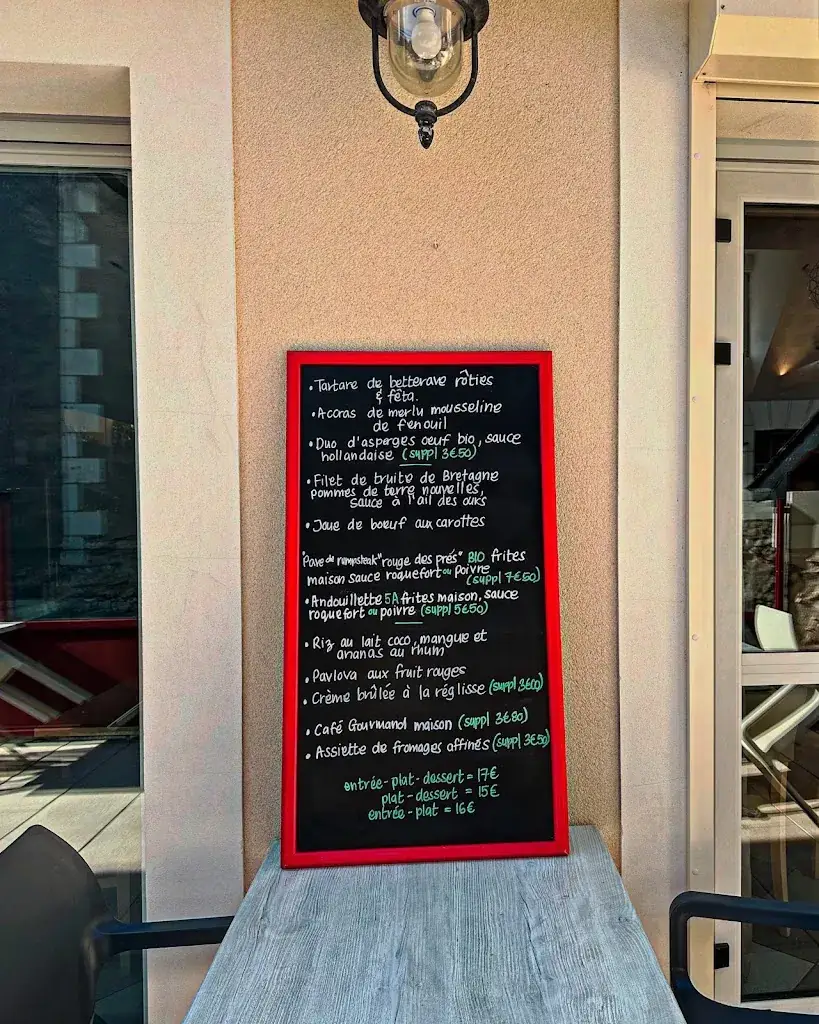 • Tartare de betterave rôties
& fêta.
• Accras de merlu mousseline
de fenouil
• Duo d'asperges oeuf bio, sauce
hollandaise (suppl 3€50)
• Filet de truite de Bretagne
pommes de terre nouvelles,
sauce à l'ail des ours
• Joue de boeuf aux carottes
"Pavé de rumpsteak "rouge des prés" BIO frites
maison sauce roquefort ou poivre
(suppl 7€50)
• Andouillette 5A frites maison, sauce
roquefort ou poivre (suppl 5€50)
• Riz au lait coco, mangue et
ananas au rhum
• Pavlova aux fruit rouges
• Crème brûlée à la réglisse (suppl 3€00)
• Café Gourmand maison (suppl 3€80)
• Assiette de fromages affinés (suppl 3€50)
entrée-plat-dessert = 17€
plat-dessert = 15€
entrée-plat = 16€